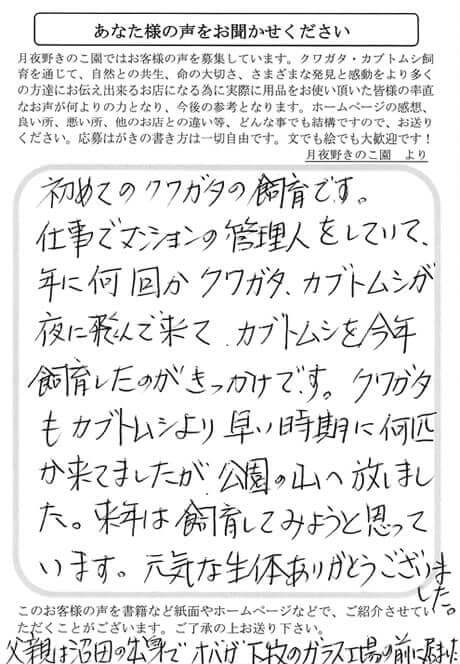 あなた様の声をお聞かせください
月夜野きのこ園ではお客様の声を募集しています。クワガタ・カブトムシ飼
育を通じて、自然との共生、命の大切さ、さまざまな発見と感動をより多く
の方達にお伝え出来るお店になる為に実際に用品をお使い頂いた皆様の率直
なお声が何よりの力となり、今後の参考となります。ホームページの感想、
良い所、悪い所、他のお店との違い等、どんな事でも結構ですので、お送り
ください。応募はがきの書き方は一切自由です。文でも絵でも大歓迎です！
月夜野きのこ園　より
初めてのクワガタの飼育です。
仕事でマンションの管理人をしていて、
年に何回かクワガタ、カブトムシが
夜に飛んで来て、カブトムシを今年
飼育したのがきっかけです。クワガタ
もカブトムシより早い時期に何匹
か来てましたが公園の山へ放しまし
た。来年は飼育してみようと思って
います。元気な生体ありがとうございま
した。
このお客様の声を書籍など紙面やホームページなどで、ご紹介させてい
ただくことがございます。ご了承の上お送り下さい。
父親は沼田の出身でオバが下牧のガラス工場の前に